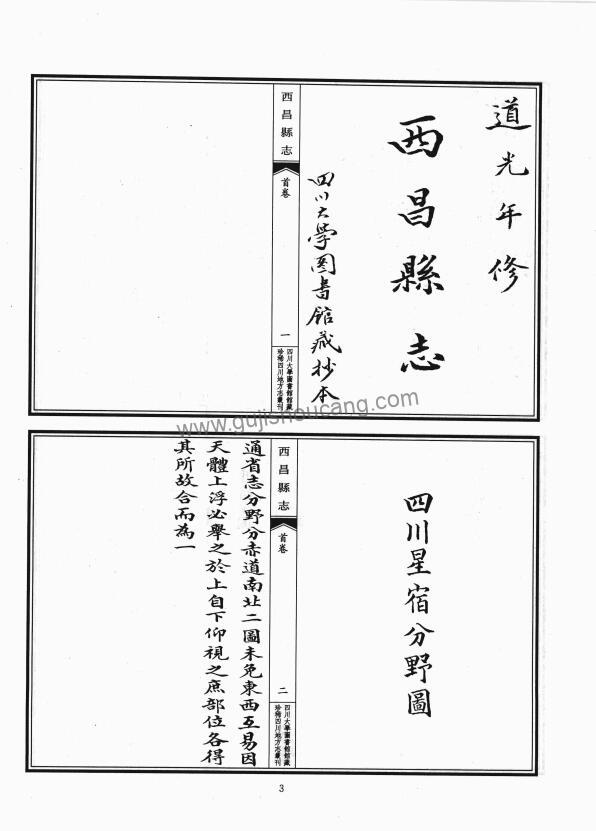 道光年修
西昌縣志
四川大學图書館藏抄本
西昌縣志
首卷
一
四川大學圖書館館藏
珍稀四川地方志叢刊
四川星宿分野圖
西昌縣志
首卷
二
四川大學圖書館館藏
珍稀四川地方志叢刊
通省志分野分赤道南北二圖未免東西互易因
天體上浮必舉之於上自下仰視之庶部位各得
其所故合而為一
3
www.gujishoucang.com